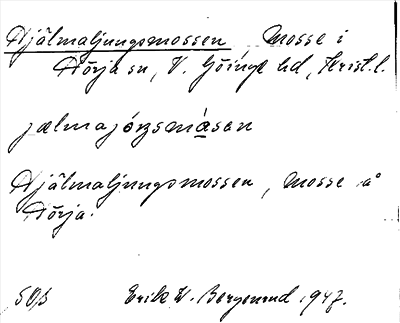 Hjälmaljungsmossen Mosse i
Hörja sn, V. Göinge hd, Krist. l.
jælmajóŋsmåsen
Hjälmaljungsmossen, mosse å
Hörja.
Erik W. Bergenrud 1947.